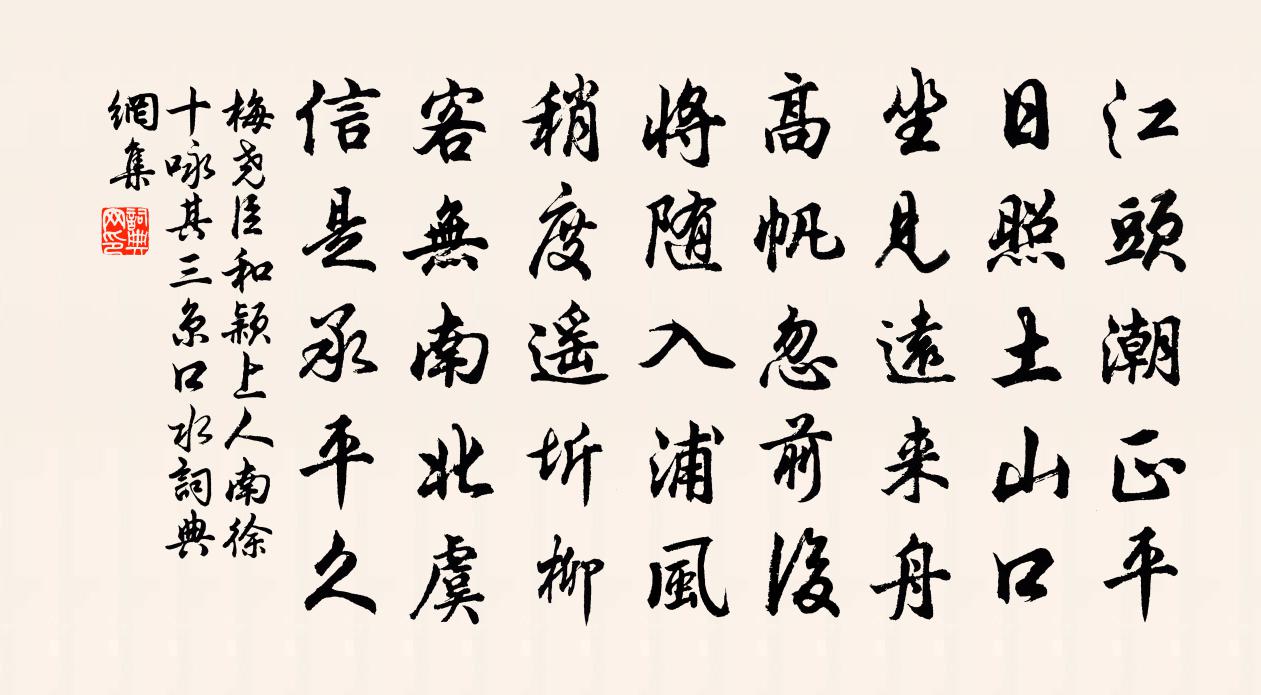 江頭潮正平
日照土山口
坐見遠来舟
高帆忽前後
將随入浦風
稍度遥圻柳
客無南北虞
信是承平久
梅堯臣和穎上人南徐
十咏其三京口水詞典
網集
詞典网印